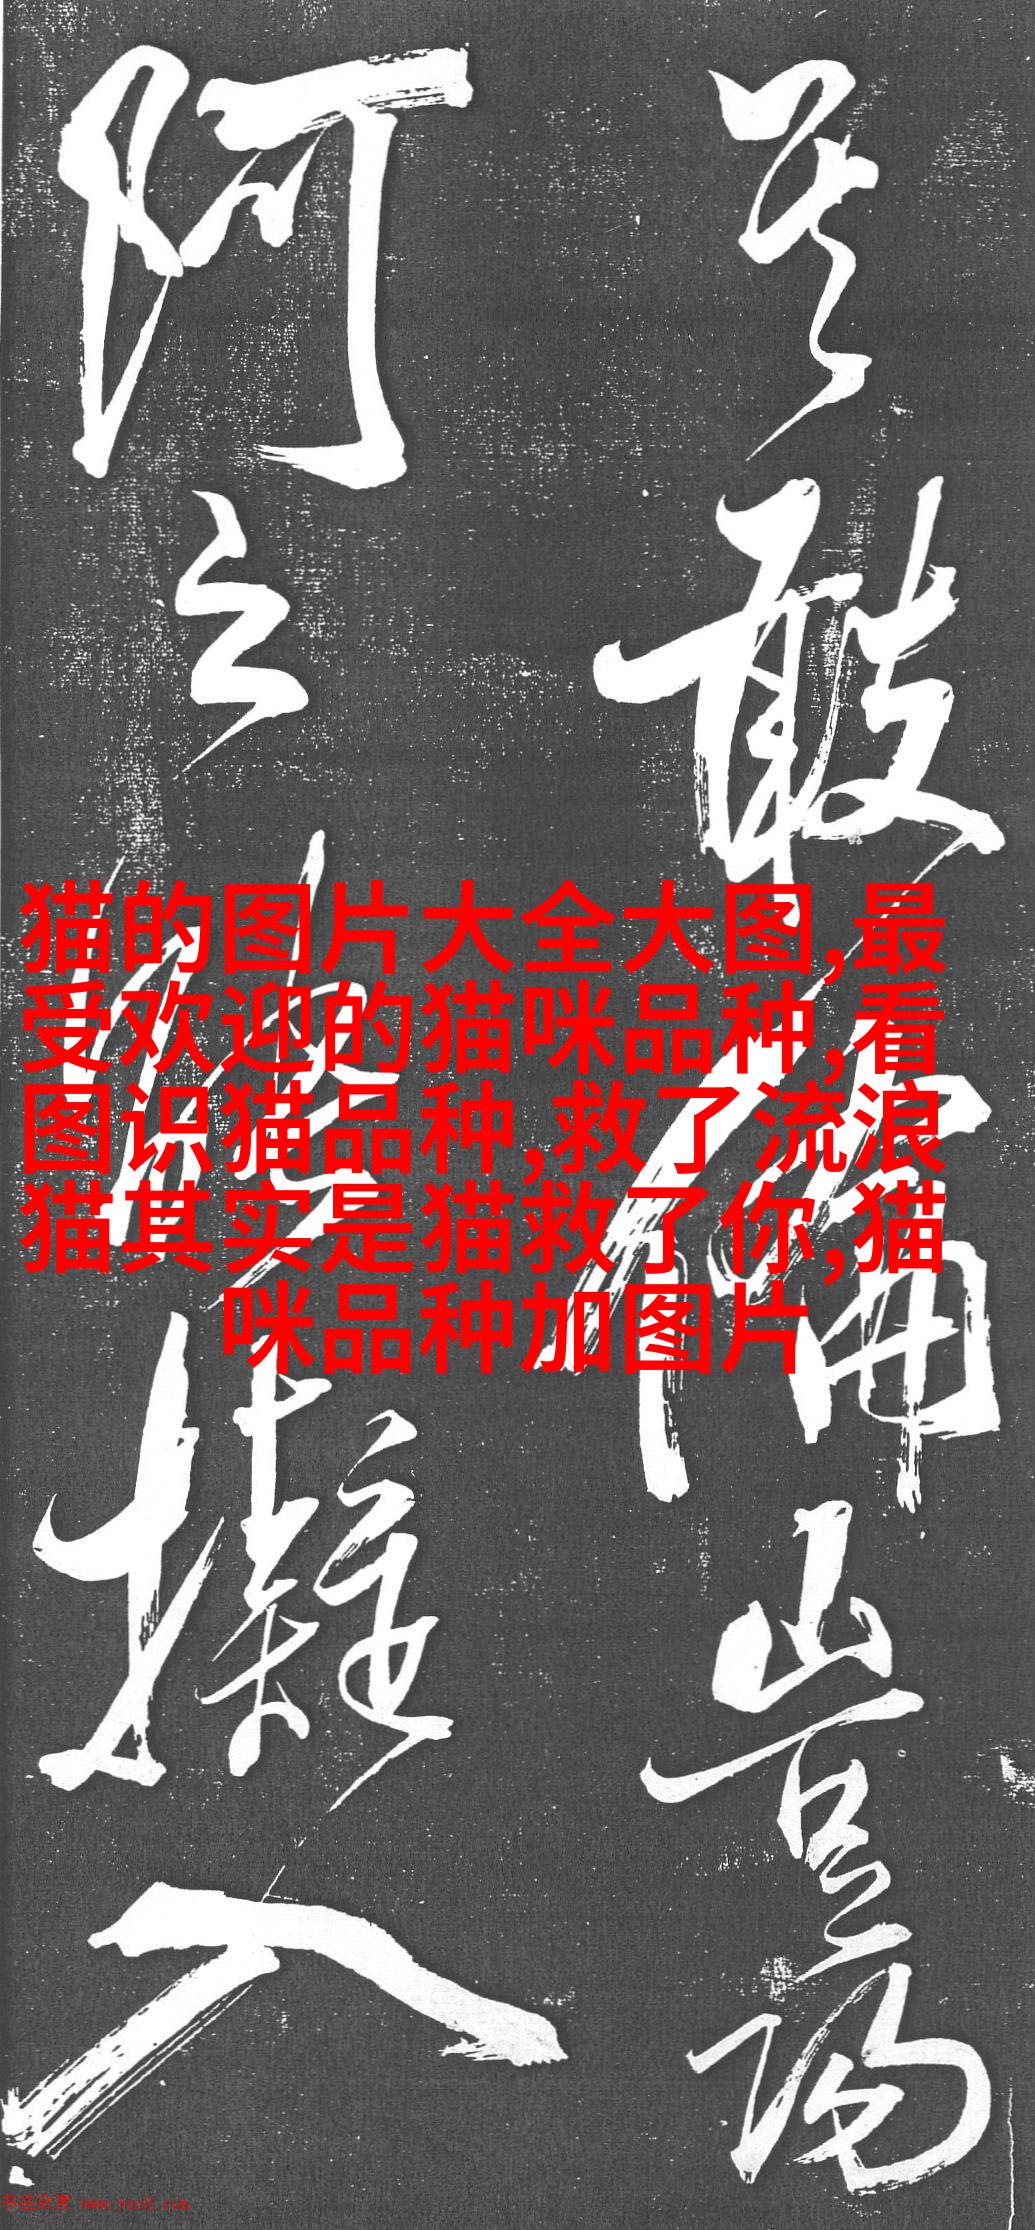 吴
敢
備
豈
陽
阿
之
能
擬
入
猫的图片大全大图,最
受欢迎的猫咪品种,看
图识猫品种,救了流浪
猫其实是猫救了你,猫
咪品种加图片
书法欣赏 www.yac8.com